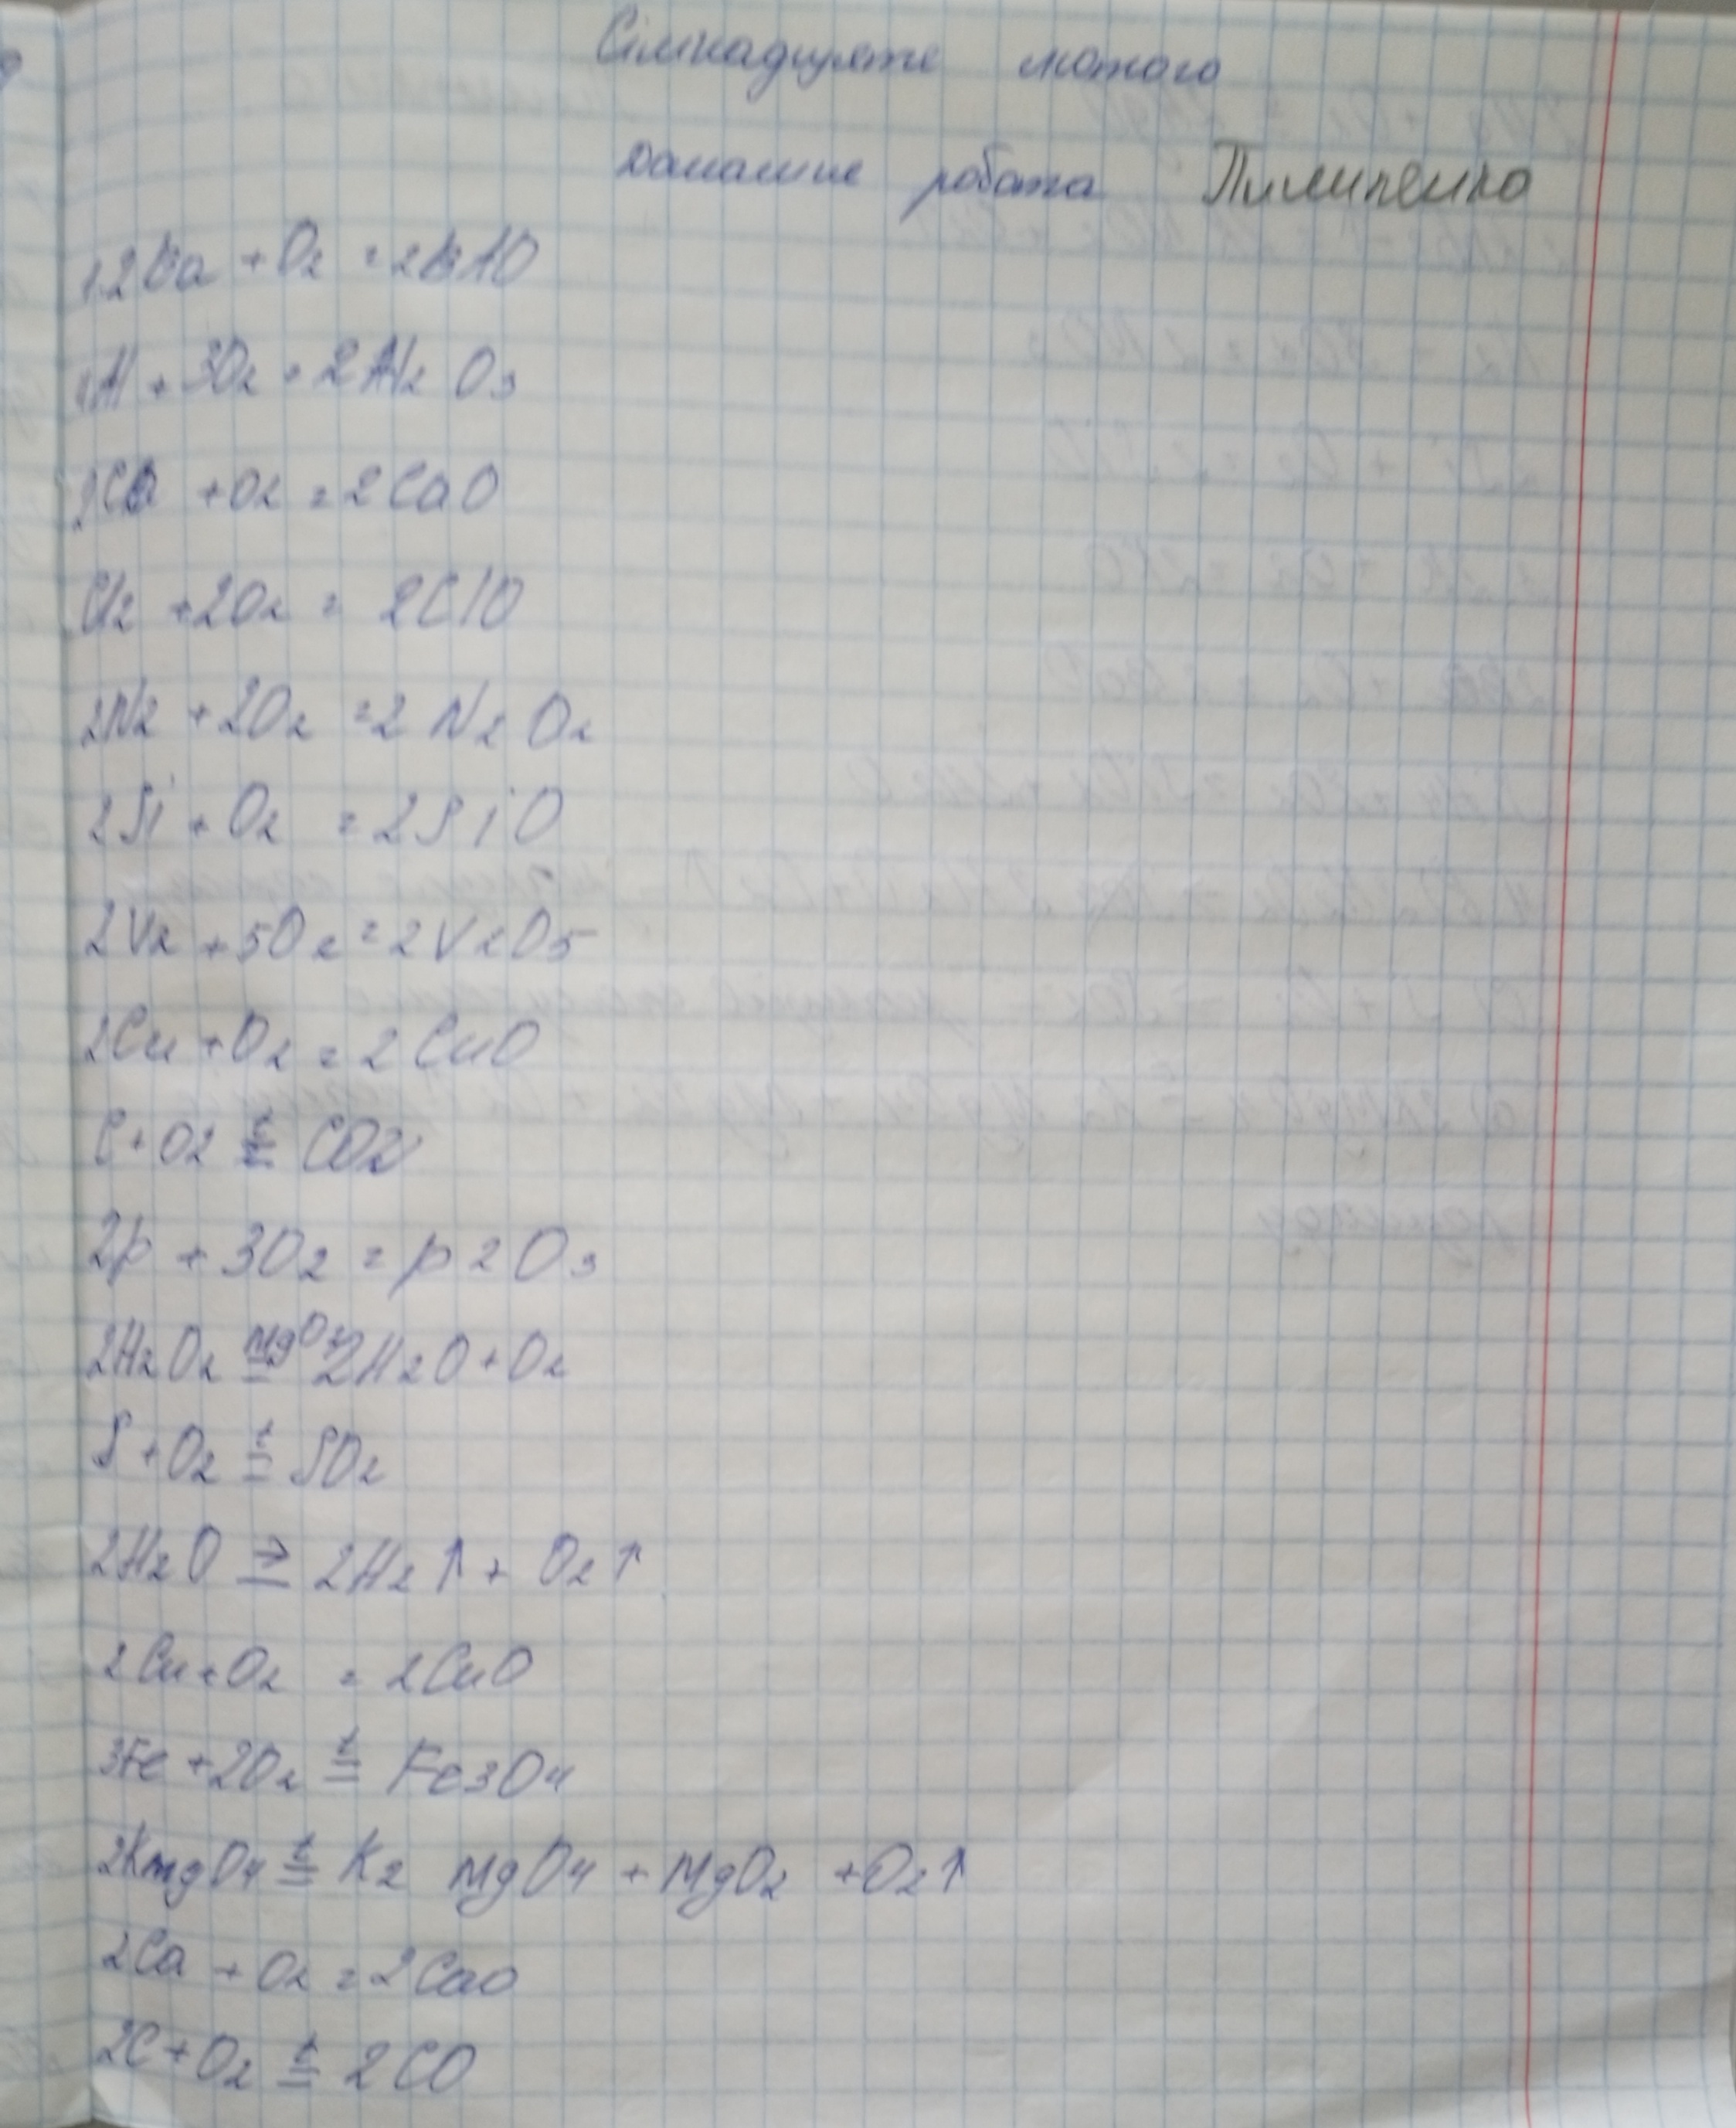 Сімнадцяте лютого
Домашне робота Пилипенко
1.2Ba + O2 = 2BaO
4Al + 3O2 = 2Al2 O3
2Ca + O2 = 2CaO
Cl2 + 2O2 = 2ClO
2N2 + 2O2 = 2 N2 O2
2Si + O2 = 2SiO
2V2 + 5O2 = 2V2O5
2Cu + O2 = 2CuO
C + O2 t= CO2
2p + 3O2 = p2O3
2H2O2 MgO2= 2H2O + O2
S + O2 t= SO2
2H2O => 2H2↑ + O2↑
2Cu + O2 = 2CuO
3Fe + 2O2 t= Fe3O4
2KmgO4 t= K2 MgO4 + MgO2 + O2↑
2Ca + O2 = 2CaO
2C + O2 t= 2CO